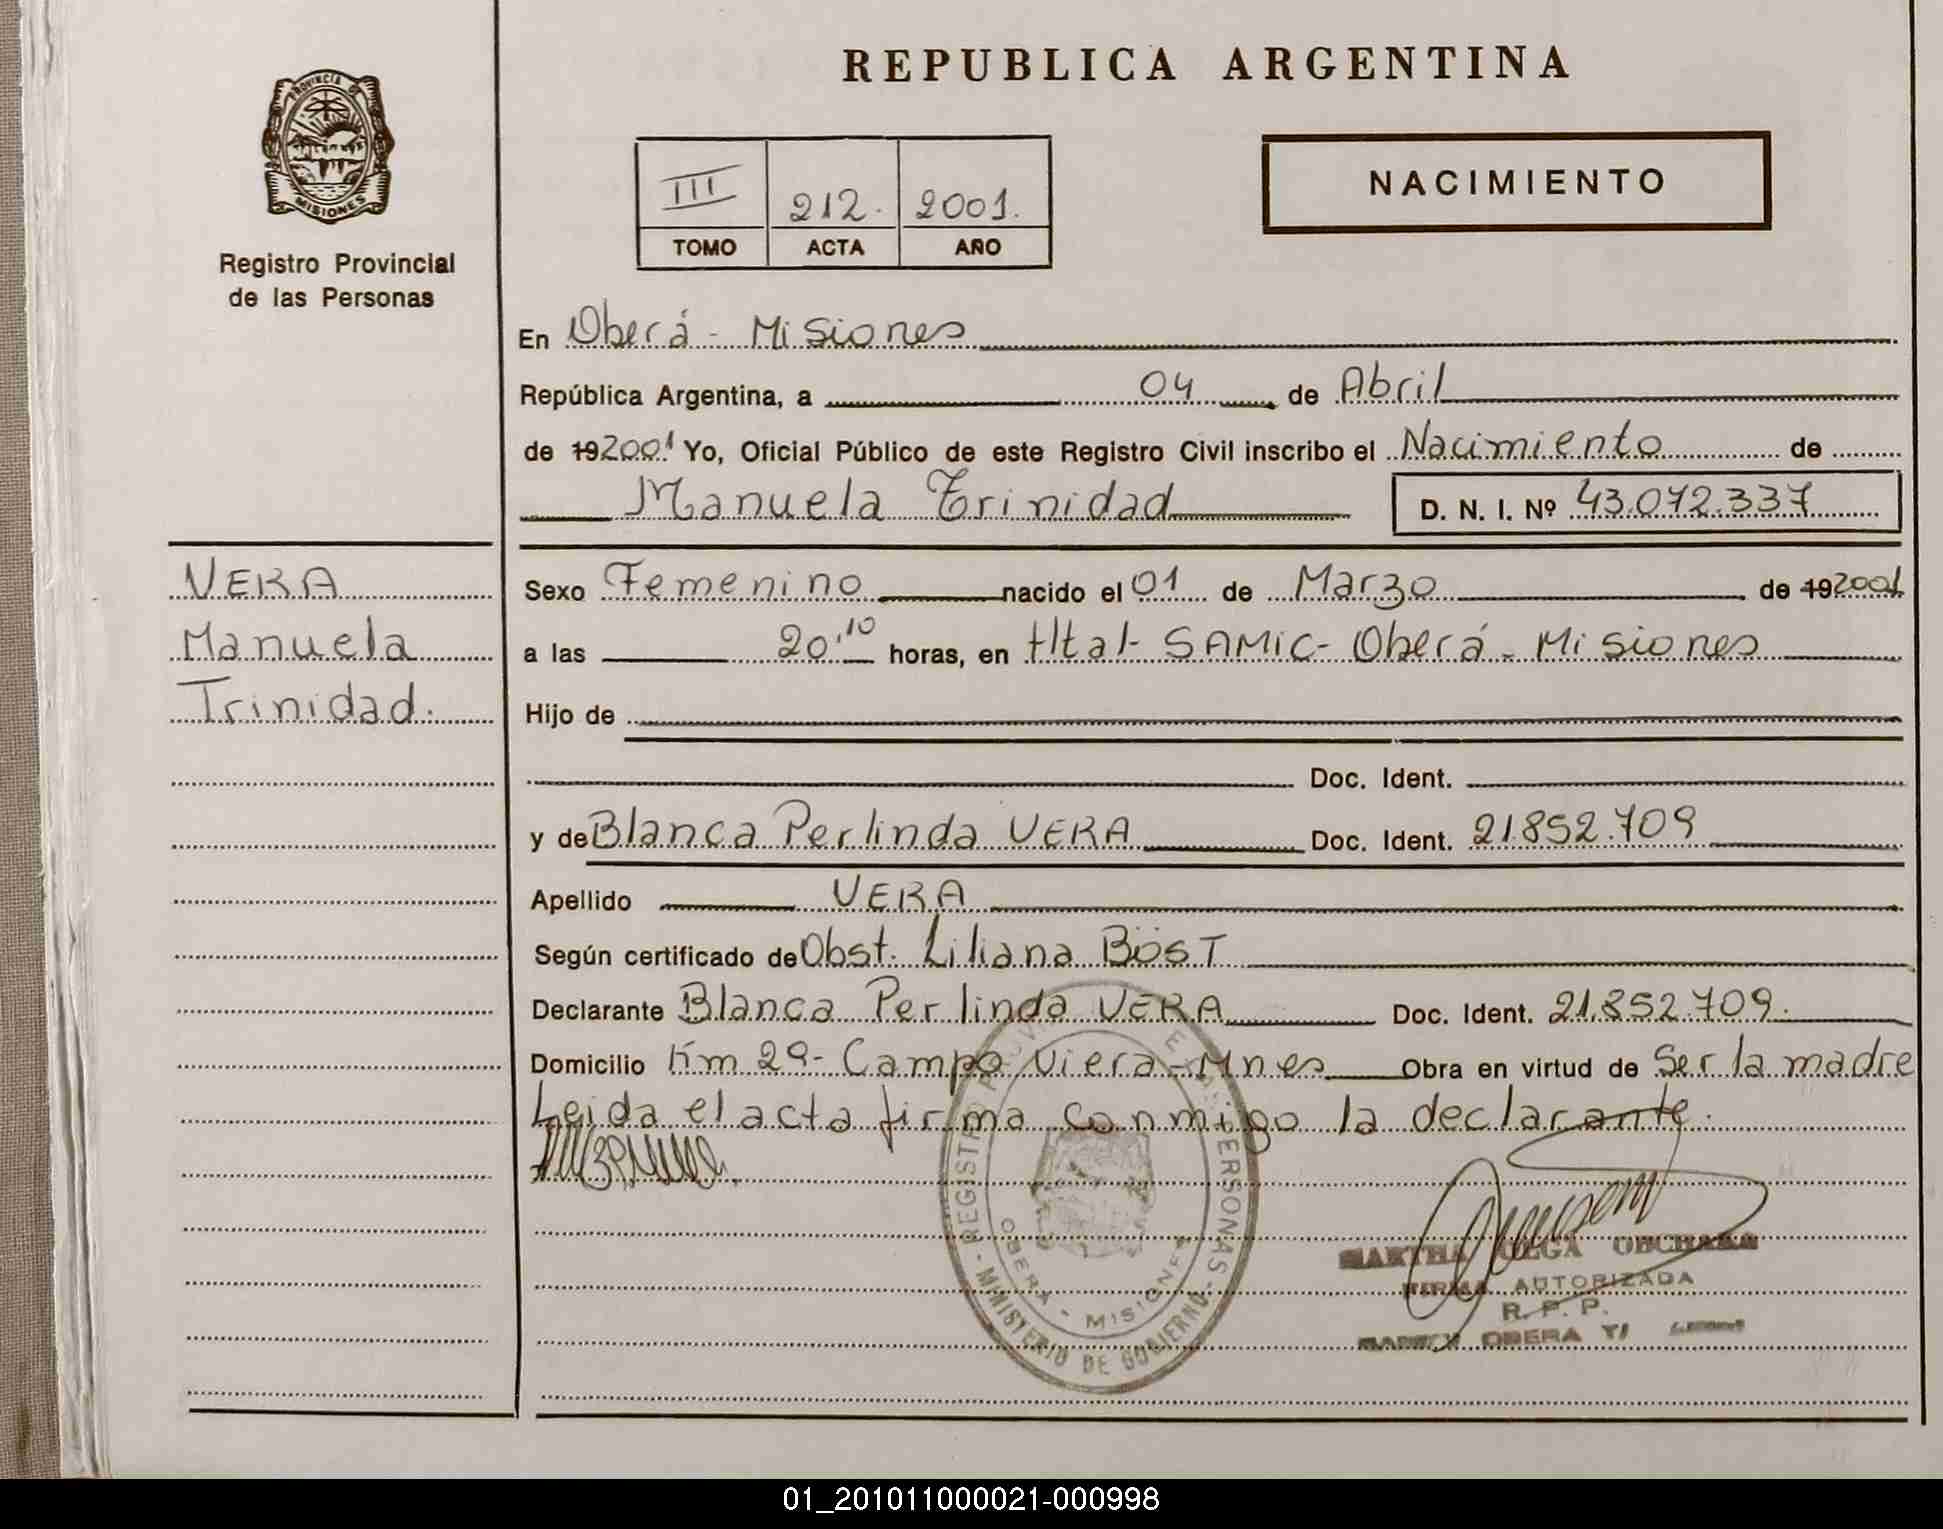 REPUBLICA ARGENTINA
PROVINCIA DE
MISIONES
Registro Provincial
de las Personas
III 212. 2001.
TOMO ACTA AÑO
NACIMIENTO
En Oberá - Misiones
República Argentina, a 04 de Abril
de 19 2001 Yo, Oficial Público de este Registro Civil inscribo el Nacimiento de
Manuela Trinidad D. N. I. Nº 43.072.337
VERA
Manuela
Trinidad.
Sexo Femenino nacido el 01 de Marzo de 19 2001
a las 20,10 horas, en Htal- SAMIC- Oberá - Misiones
Hijo de
Doc. Ident.
y de Blanca Perlinda VERA Doc. Ident. 21.852.709
Apellido VERA
Según certificado de Obst. Liliana BÖST
Declarante Blanca Perlinda VERA Doc. Ident. 21.852.709.
Domicilio Km 29- Campo Viera - Mnes Obra en virtud de Ser la madre
Leida el acta firma conmigo la declarante.
REGISTRO PERSONAS
OBERA - MISIONES
- MINISTERIO DE GOBIERNO -
MARTHA OLGA
FIRMA AUTORIZADA
R. P. P.
OBERA
01_201011000021-000998